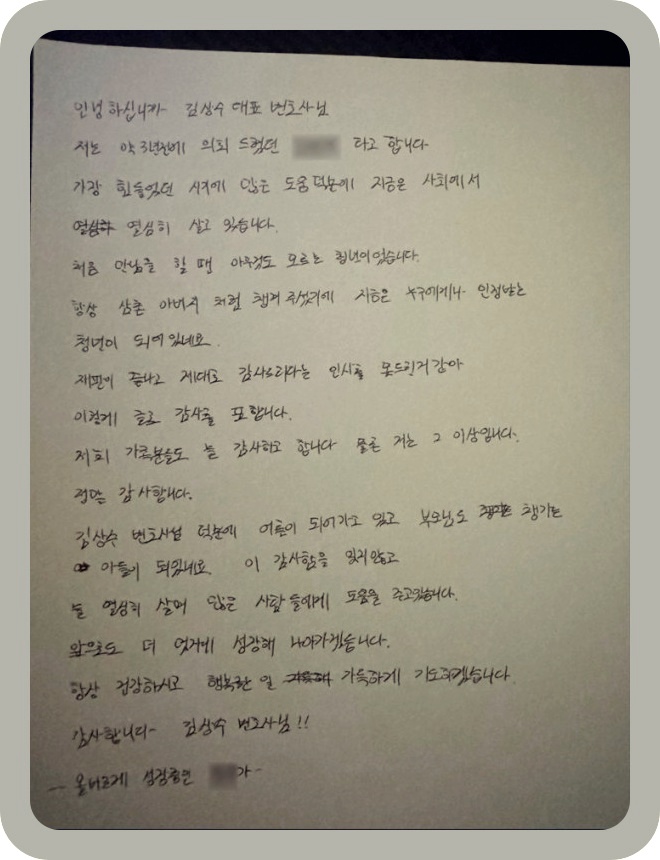 안녕하십니까 김상수 대표 변호사님
저는 약 3년전에 의뢰 드렸던 라고 합니다
가장 힘들었던 시기에 많은 도움 덕분에 지금은 사회에서
열심히 살고 있습니다.
처음 만남을 할 때 아무것도 모르는 청년이었습니다.
항상 삼촌 아버지 처럼 챙겨 주셨기에 지금은 누구에게나 인정받는
청년이 되어 있네요.
재판이 끝나고 제대로 감사드리다는 인사를 못드린거 같아
이렇게 글로 감사를 표합니다.
저희 가족분들도 늘 감사하고 합니다 물론 저는 그 이상입니다.
정말 감사합니다.
김상수 변호사님 덕분에 어른이 되어가고 있고 부모님도 챙기는
아들이 되있네요. 이 감사함을 잊지않고
늘 열심히 살며 많은 사람들에게 도움을 주고있습니다.
앞으로도 더 멋지게 성장해 나아가겠습니다.
항상 건강하시고 행복한 일 가득하게 기도하겠습니다.
감사합니다- 김상수 변호사님!!
- 올바르게 성장중인 가-